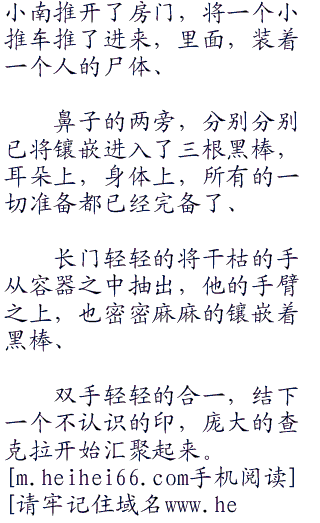 小南推开了房门，将一个小
推车推了进来，里面，装着
一个人的尸体、
鼻子的两旁，分别分别
已将镶嵌进入了三根黑棒，
耳朵上，身体上，所有的一
切准备都已经完备了、
长门轻轻的将干枯的手
从容器之中抽出，他的手臂
之上，也密密麻麻的镶嵌着
黑棒、
双手轻轻的合一，结下
一个不认识的印，庞大的查
克拉开始汇聚起来。
[m.heihei66.com手机阅读]
[请牢记住域名www.he